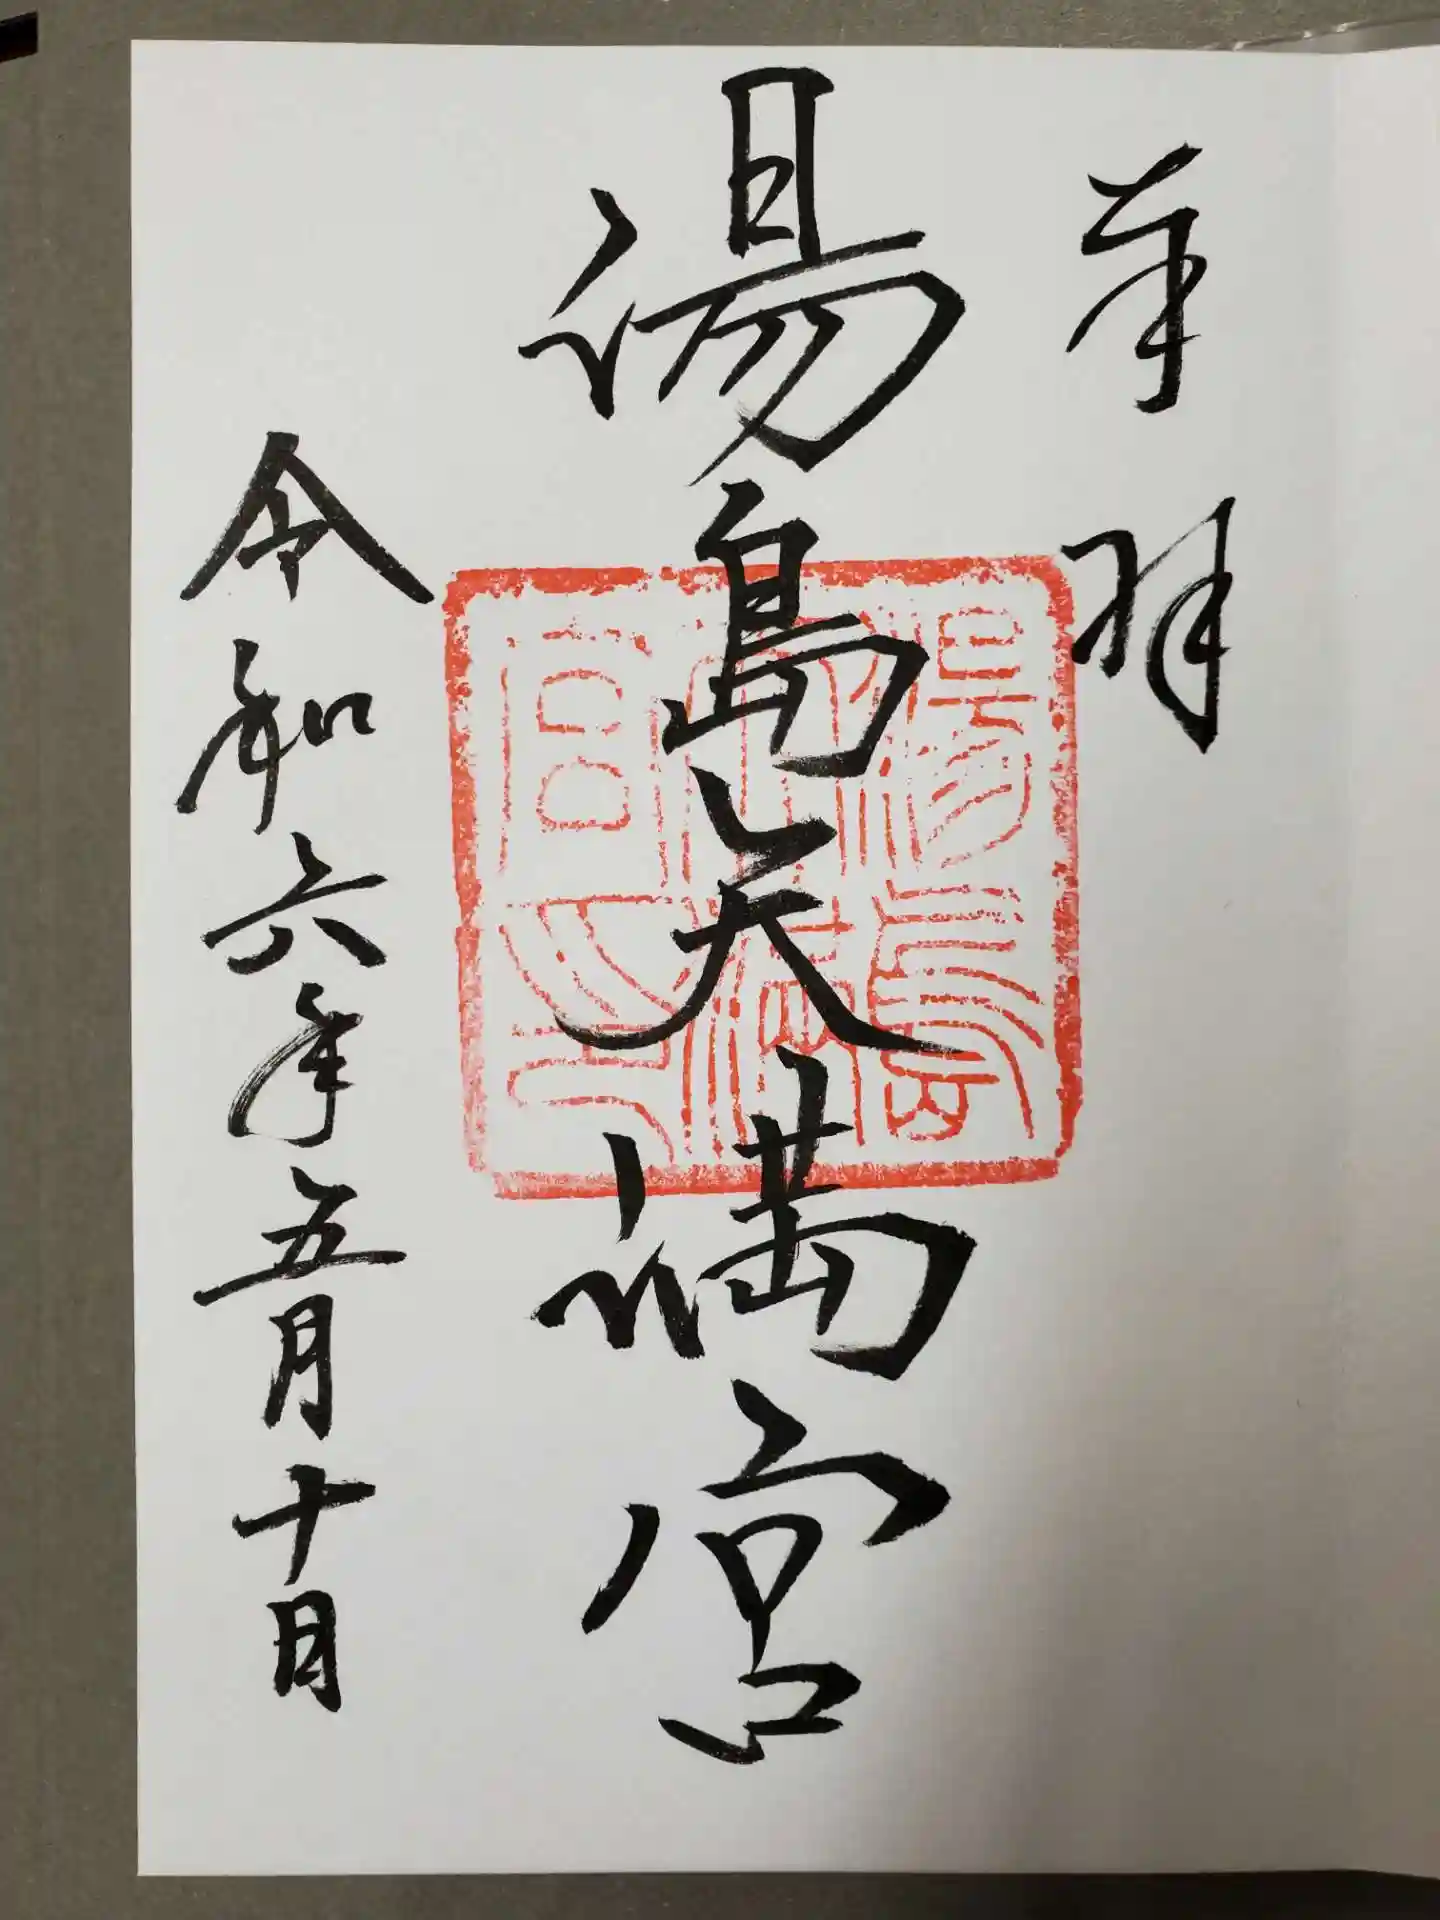 奉拝
湯島天満宮
湯島天満宮之印
令和六年五月十日